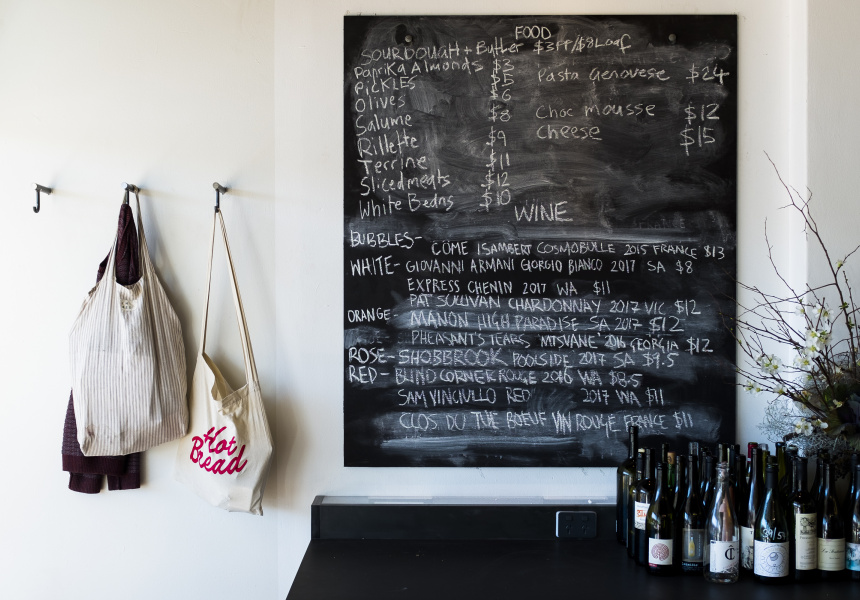 FOOD
SOURDOUGH + Butter $3PP/$8Loaf
Paprika Almonds $3
PICKLES $5
Olives $6
Salume $8
Rillette $9
Terrine $11
Sliced meats $12
White Beans $10
Pasta Genovese $24
Choc mousse $12
Cheese $15
WINE
BUBBLES- CÔME ISAMBERT COSMOBULLE 2015 FRANCE $13
WHITE- GIOVANNI ARMANI GIORGIO BIANCO 2017 SA $8
EXPRESS CHENIN 2017 WA $11
PAT SULLIVAN CHARDONNAY 2017 VIC $12
ORANGE- MANON HIGH PARADISE SA 2017 $12
PHEASANT'S TEARS MTSVANE 2016 GEORGIA $12
ROSE- SHOBBROOK POOLSIDE 2017 SA $9.5
RED- BLIND CORNER ROUGE 2016 WA $8.5
SAM VINCIULLO RED 2017 WA $11
CLOS DU TUE BOEUF VIN ROUGE FRANCE $11
Hot
Bread